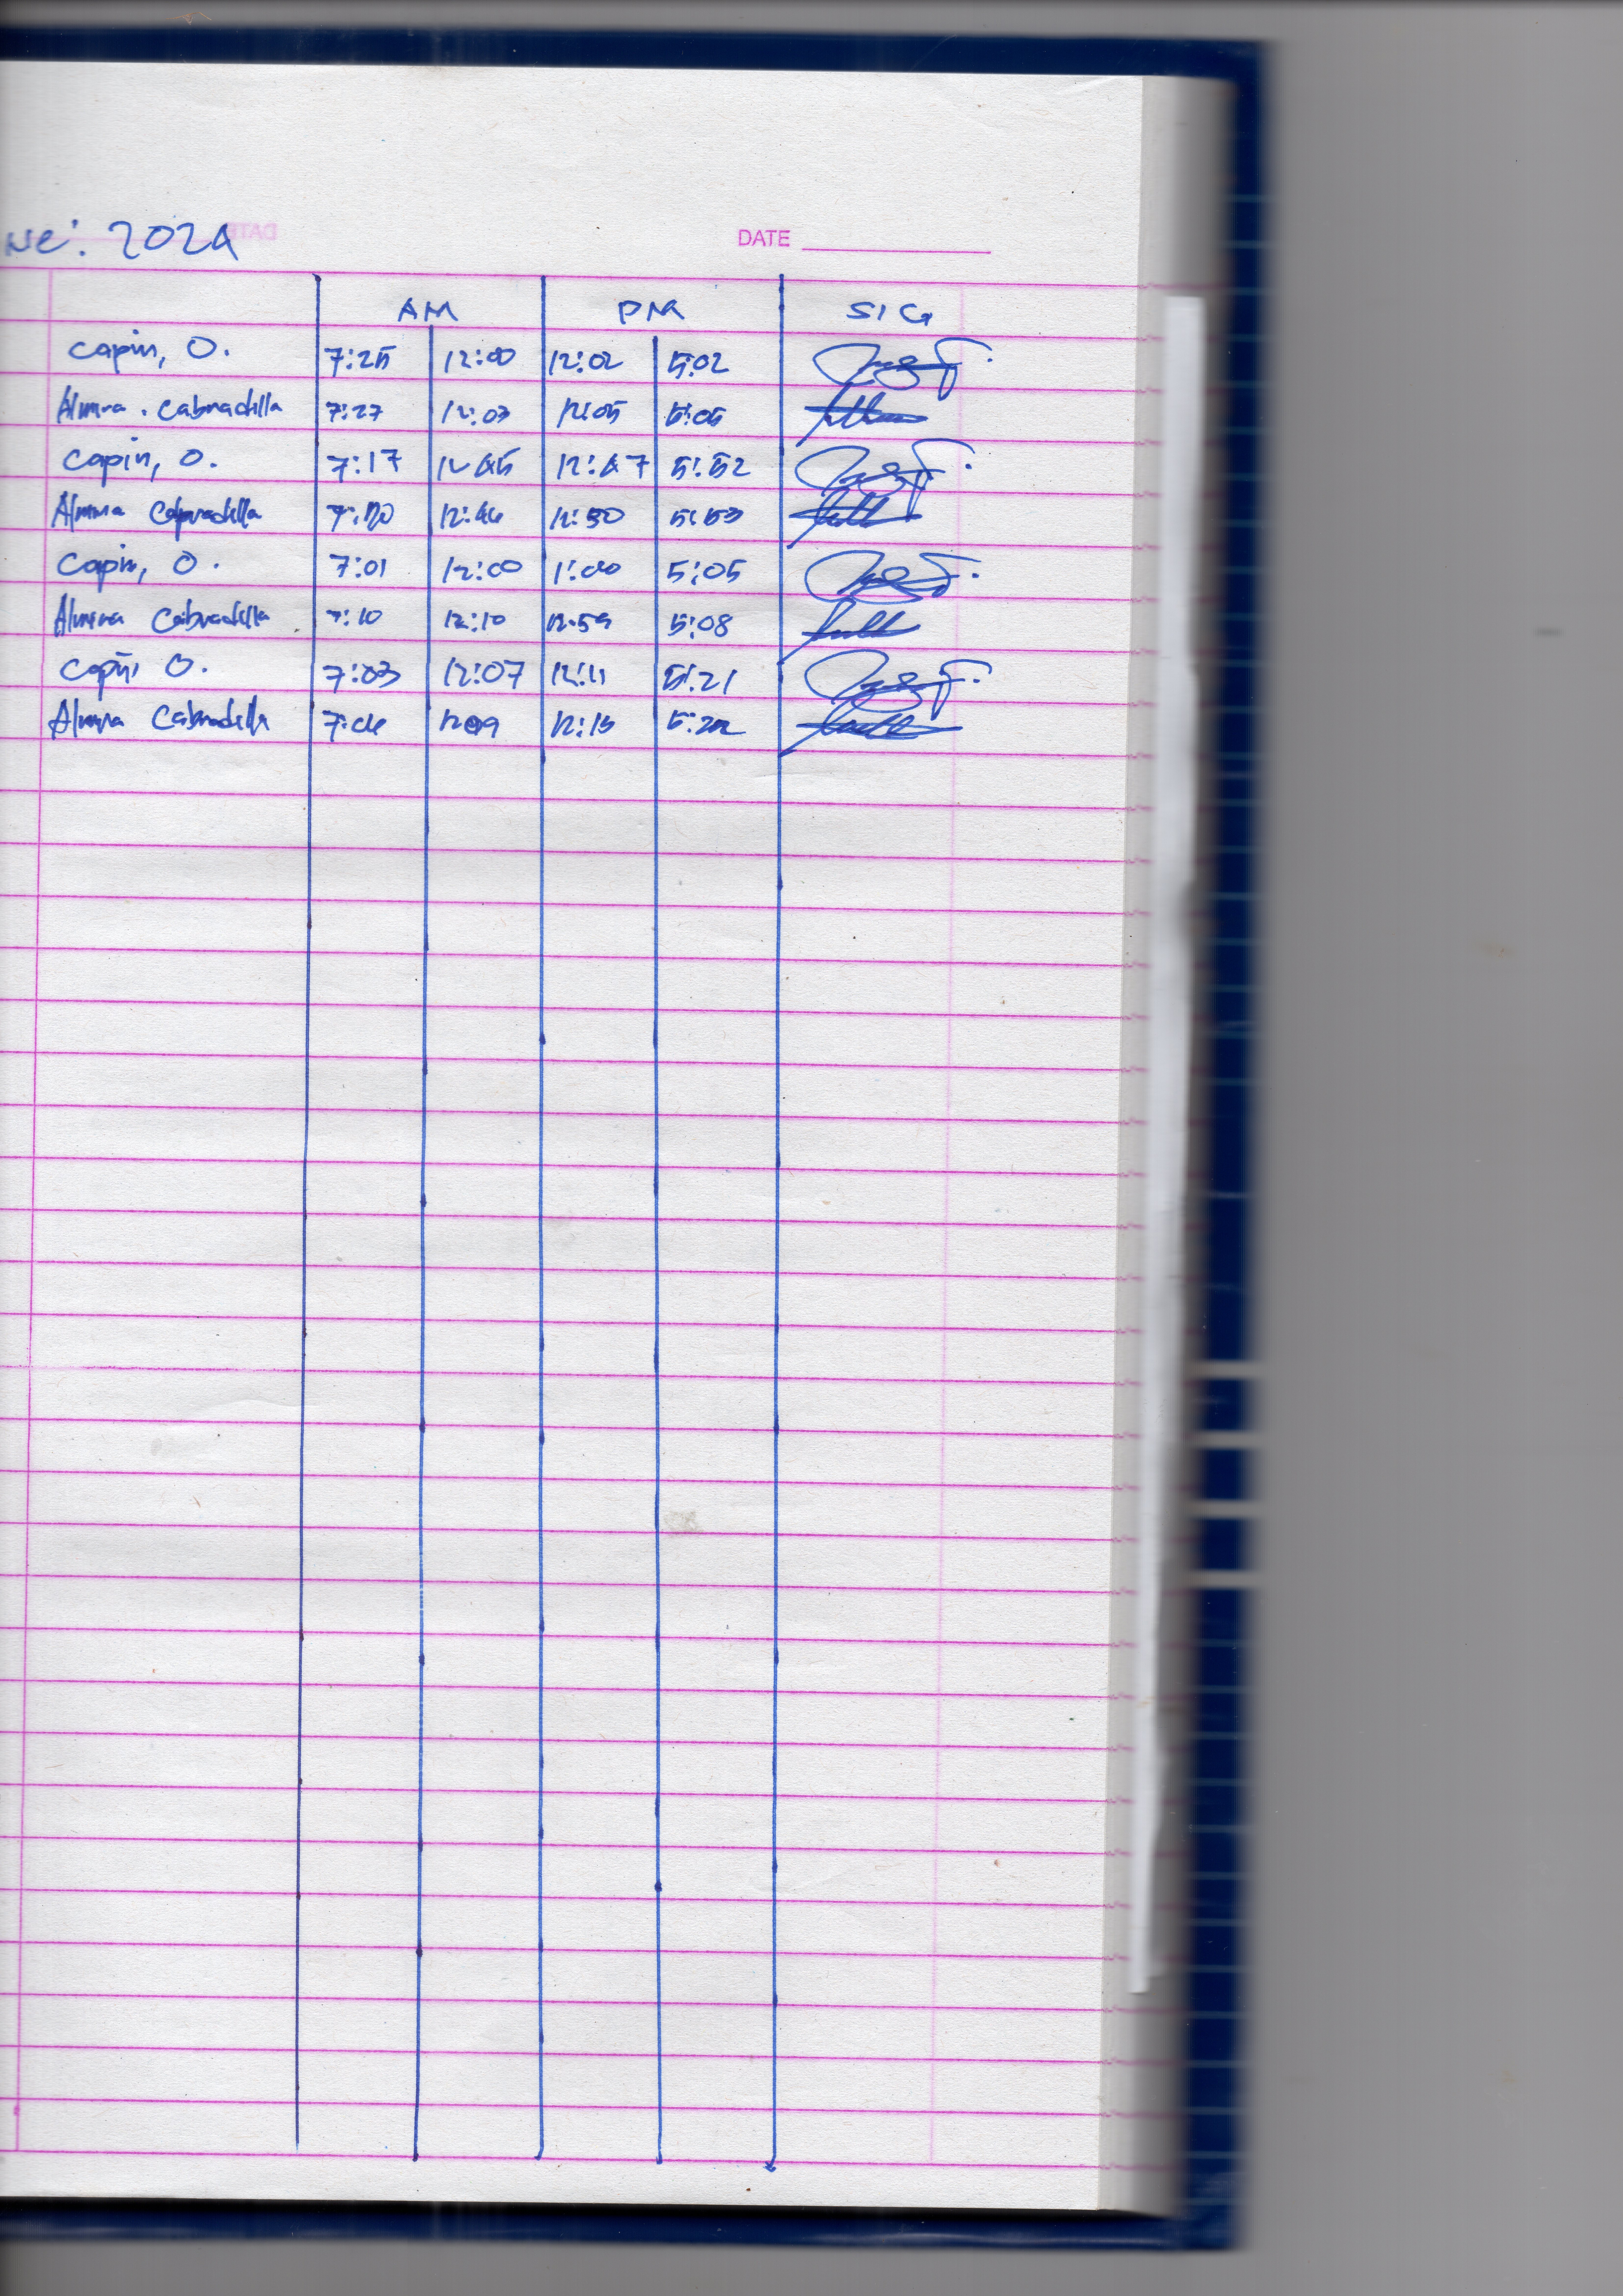 ne: 2024
DATE
AM PM SIG
Capin, O. 7:25 12:00 12:02 5:02
Almira . Cabradilla 7:27 12:03 12:05 5:05
Capin, O. 7:17 12:45 12:47 5:52
Almira Cabradilla 7:20 12:46 12:50 5:53
Capin, O. 7:01 12:00 1:00 5:05
Almira Cabradilla 7:10 12:10 12:59 5:08
Capin, O. 7:03 12:07 12:11 5:21
Almira Cabradilla 7:06 1209 12:15 5:22